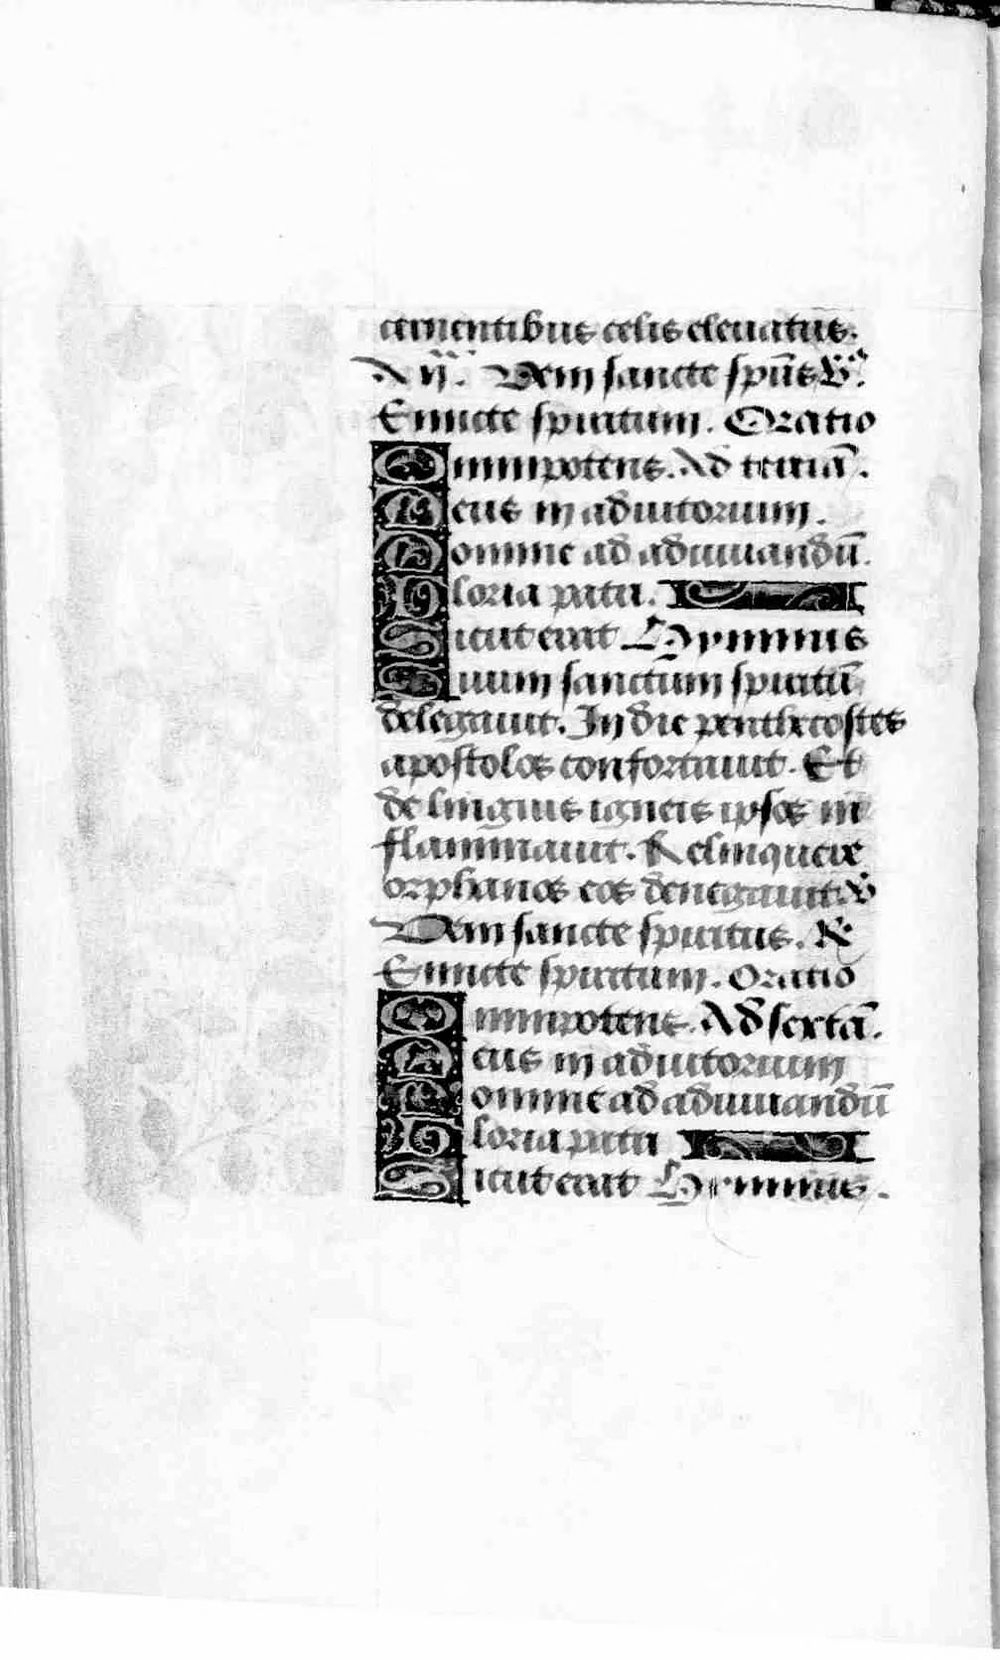 cernentibus celis eleuatus.
Añ. Veni sancte spũs ℣.
Emitte spiritum. Oratio
Omnipotens. Ad terciã.
Deus in adiutorium.
Domine ad adiuuandũ.
Gloria patri.
Sicut erat Hymnus
Suum sanctum spiritũ
delegauit. In die penthecostes
apostolos confortauit. Et
de linguis igneis ipsos in
flammauit. Relinquere
orphanos eos denegauit. ℣
Veni sancte spiritus. ℟
Emitte spiritum. Oratio
Omnipotens. Ad sextã.
Deus in adiutorium
Domine ad adiuuandũ
Gloria patri
Sicut erat Hymnus.